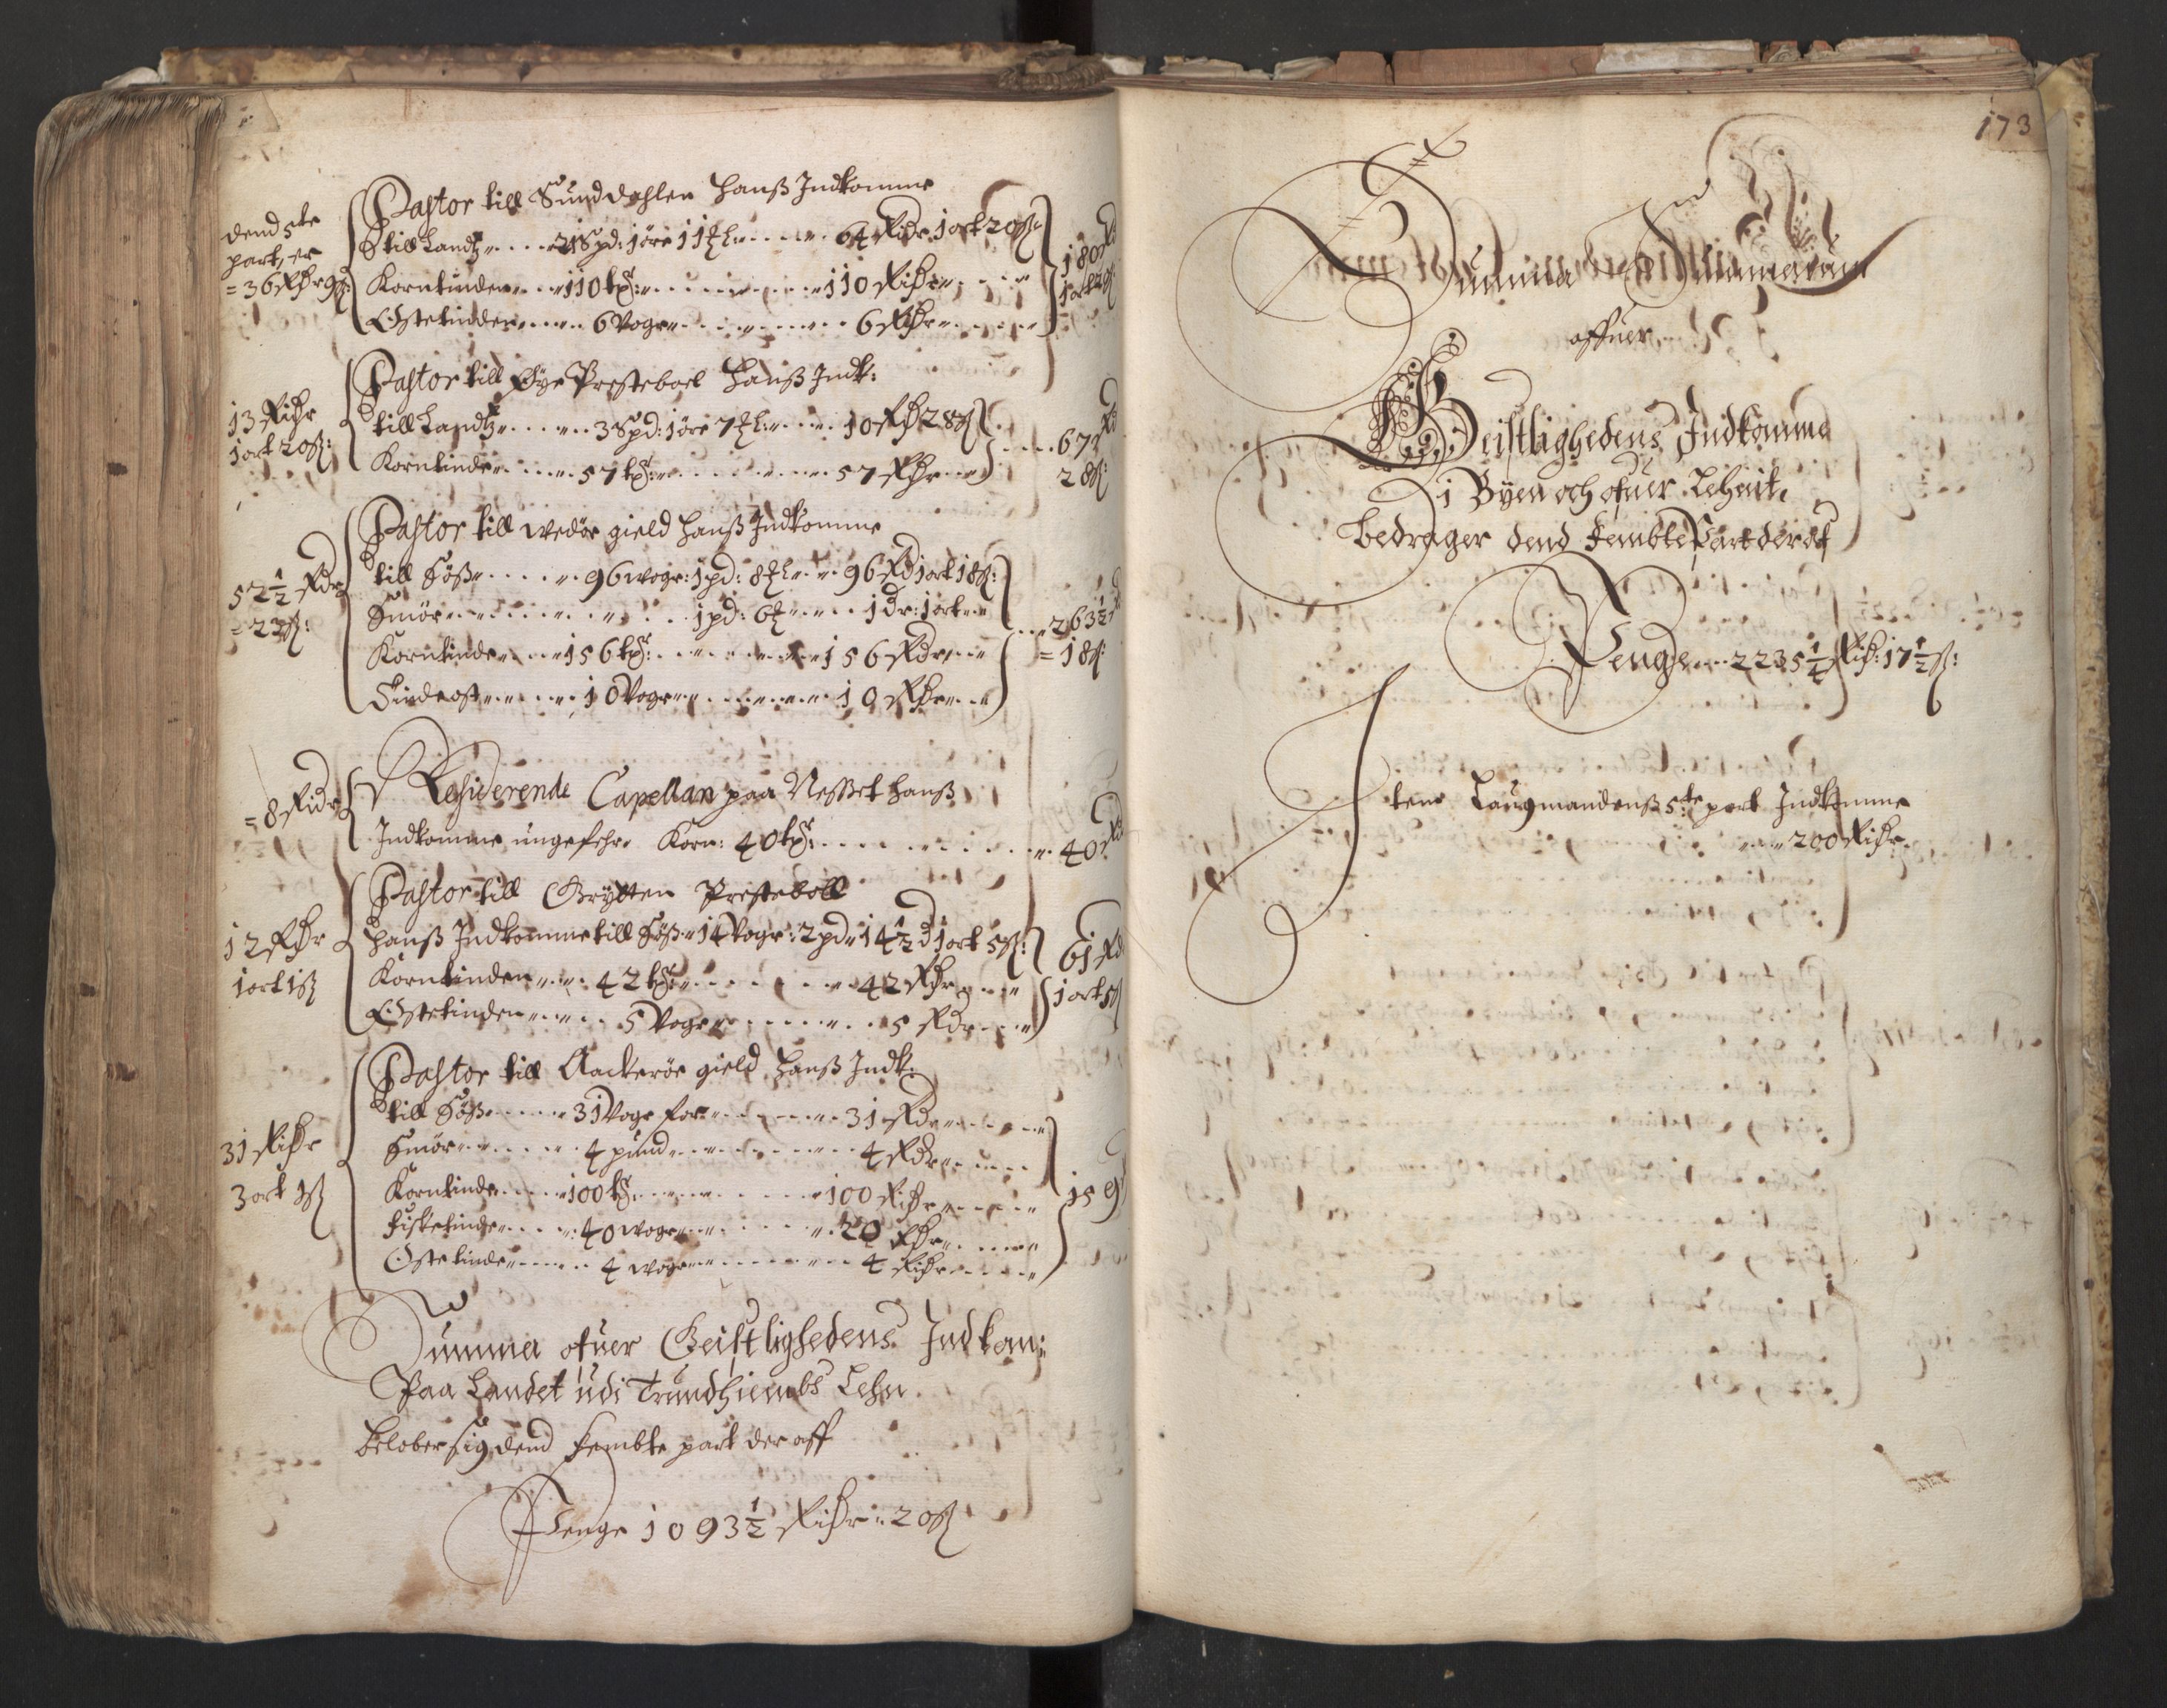 dend 5te
part, er
= 36 Rdr 9 ß:
Pastor till Sunddahlen hanß Indkomme
till Landtz 21 Spd: 1 öre 11 ℔: 64 Rdr: 1 ort 20 ß
Korntinden 110 tr: 110 Rixdr
Ostetinden 6 Voger 6 Rixdr
180 Rd
1 ort 20 ß
13 Rixdr
1 ort 20 ß:
Pastor till Öye Presteboel hanß Indk:
till Landtz 3 Spd: 1 öre 7 ℔: 10 Rdr 28 ß
Korntinde 57 tr: 57 Rdr
67 Rd
28 ß:
52 1/2 Rdr
= 23 ß:
Pastor till Wedöe gield hanß Indkomme
till Söß 96 woger: 1 pd: 8 ℔ 96 Rd 1 ort 18 ß:
Smör 1 pd: 6 ℔ 1 dr: 1 ort
Korntinde 156 tr: 156 Rdr
Tindeost 10 Voger 10 Rdr
263 1/2
= 18 ß:
= 8 Rixdr
Residerende Capellan paa Nesset hanß
Indkomme ungefehr Korn: 40 tr:
40 Rd
12 Rdr
1 ort 1 ß
Pastor till Grytten Presteboll
hanß Indkomme till Söß 14 Voger: 2 pd 14 1/2 d 1 ort 5 ß:
Korntinden 42 tr: 42 Rdr
Ostetinden 5 Voger 5 Rdr
61 Rd
1 ort 5 ß
31 Rixdr
3 ort 1 ß
Pastor till Aackeröe gield hanß Indk:
till Söß 31 Voge for 31 Rdr
Smör 4 pund 4 Rdr
Korntinde 100 tr: 100 Rixdr
Fisketinde 40 woger 20 Rdr
Ostetinde 4 woger 4 Rixdr
159
Summa ofuer Geistlighedens Indkom:
Paa Landet udi Trundhiembs Lehn
beløber sig dend Fembte part der aff
Penge 1093 1/2 Rixdr: 20 ß
173
Summa Summarum
offuer
Geistlighedens Indkomme
i Byen och ofuer Lehnit
bedrager dend Fembte Part deraf
Penge 2235 1/4 Rixd: 17 1/2 ß:
Item Laugmandenß 5:te part Indkomme
200 Rixdr